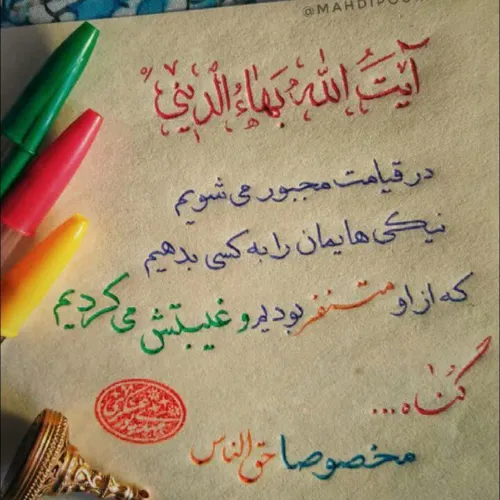 @MAHDIPOU
آیت الله بهاءالدینی
در قیامت مجبور می شویم
نیکی هایمان را به کسی بدهیم
که از او متنفر بودیم و غیبتش می کردیم
گناه...
مخصوصا حق الناس